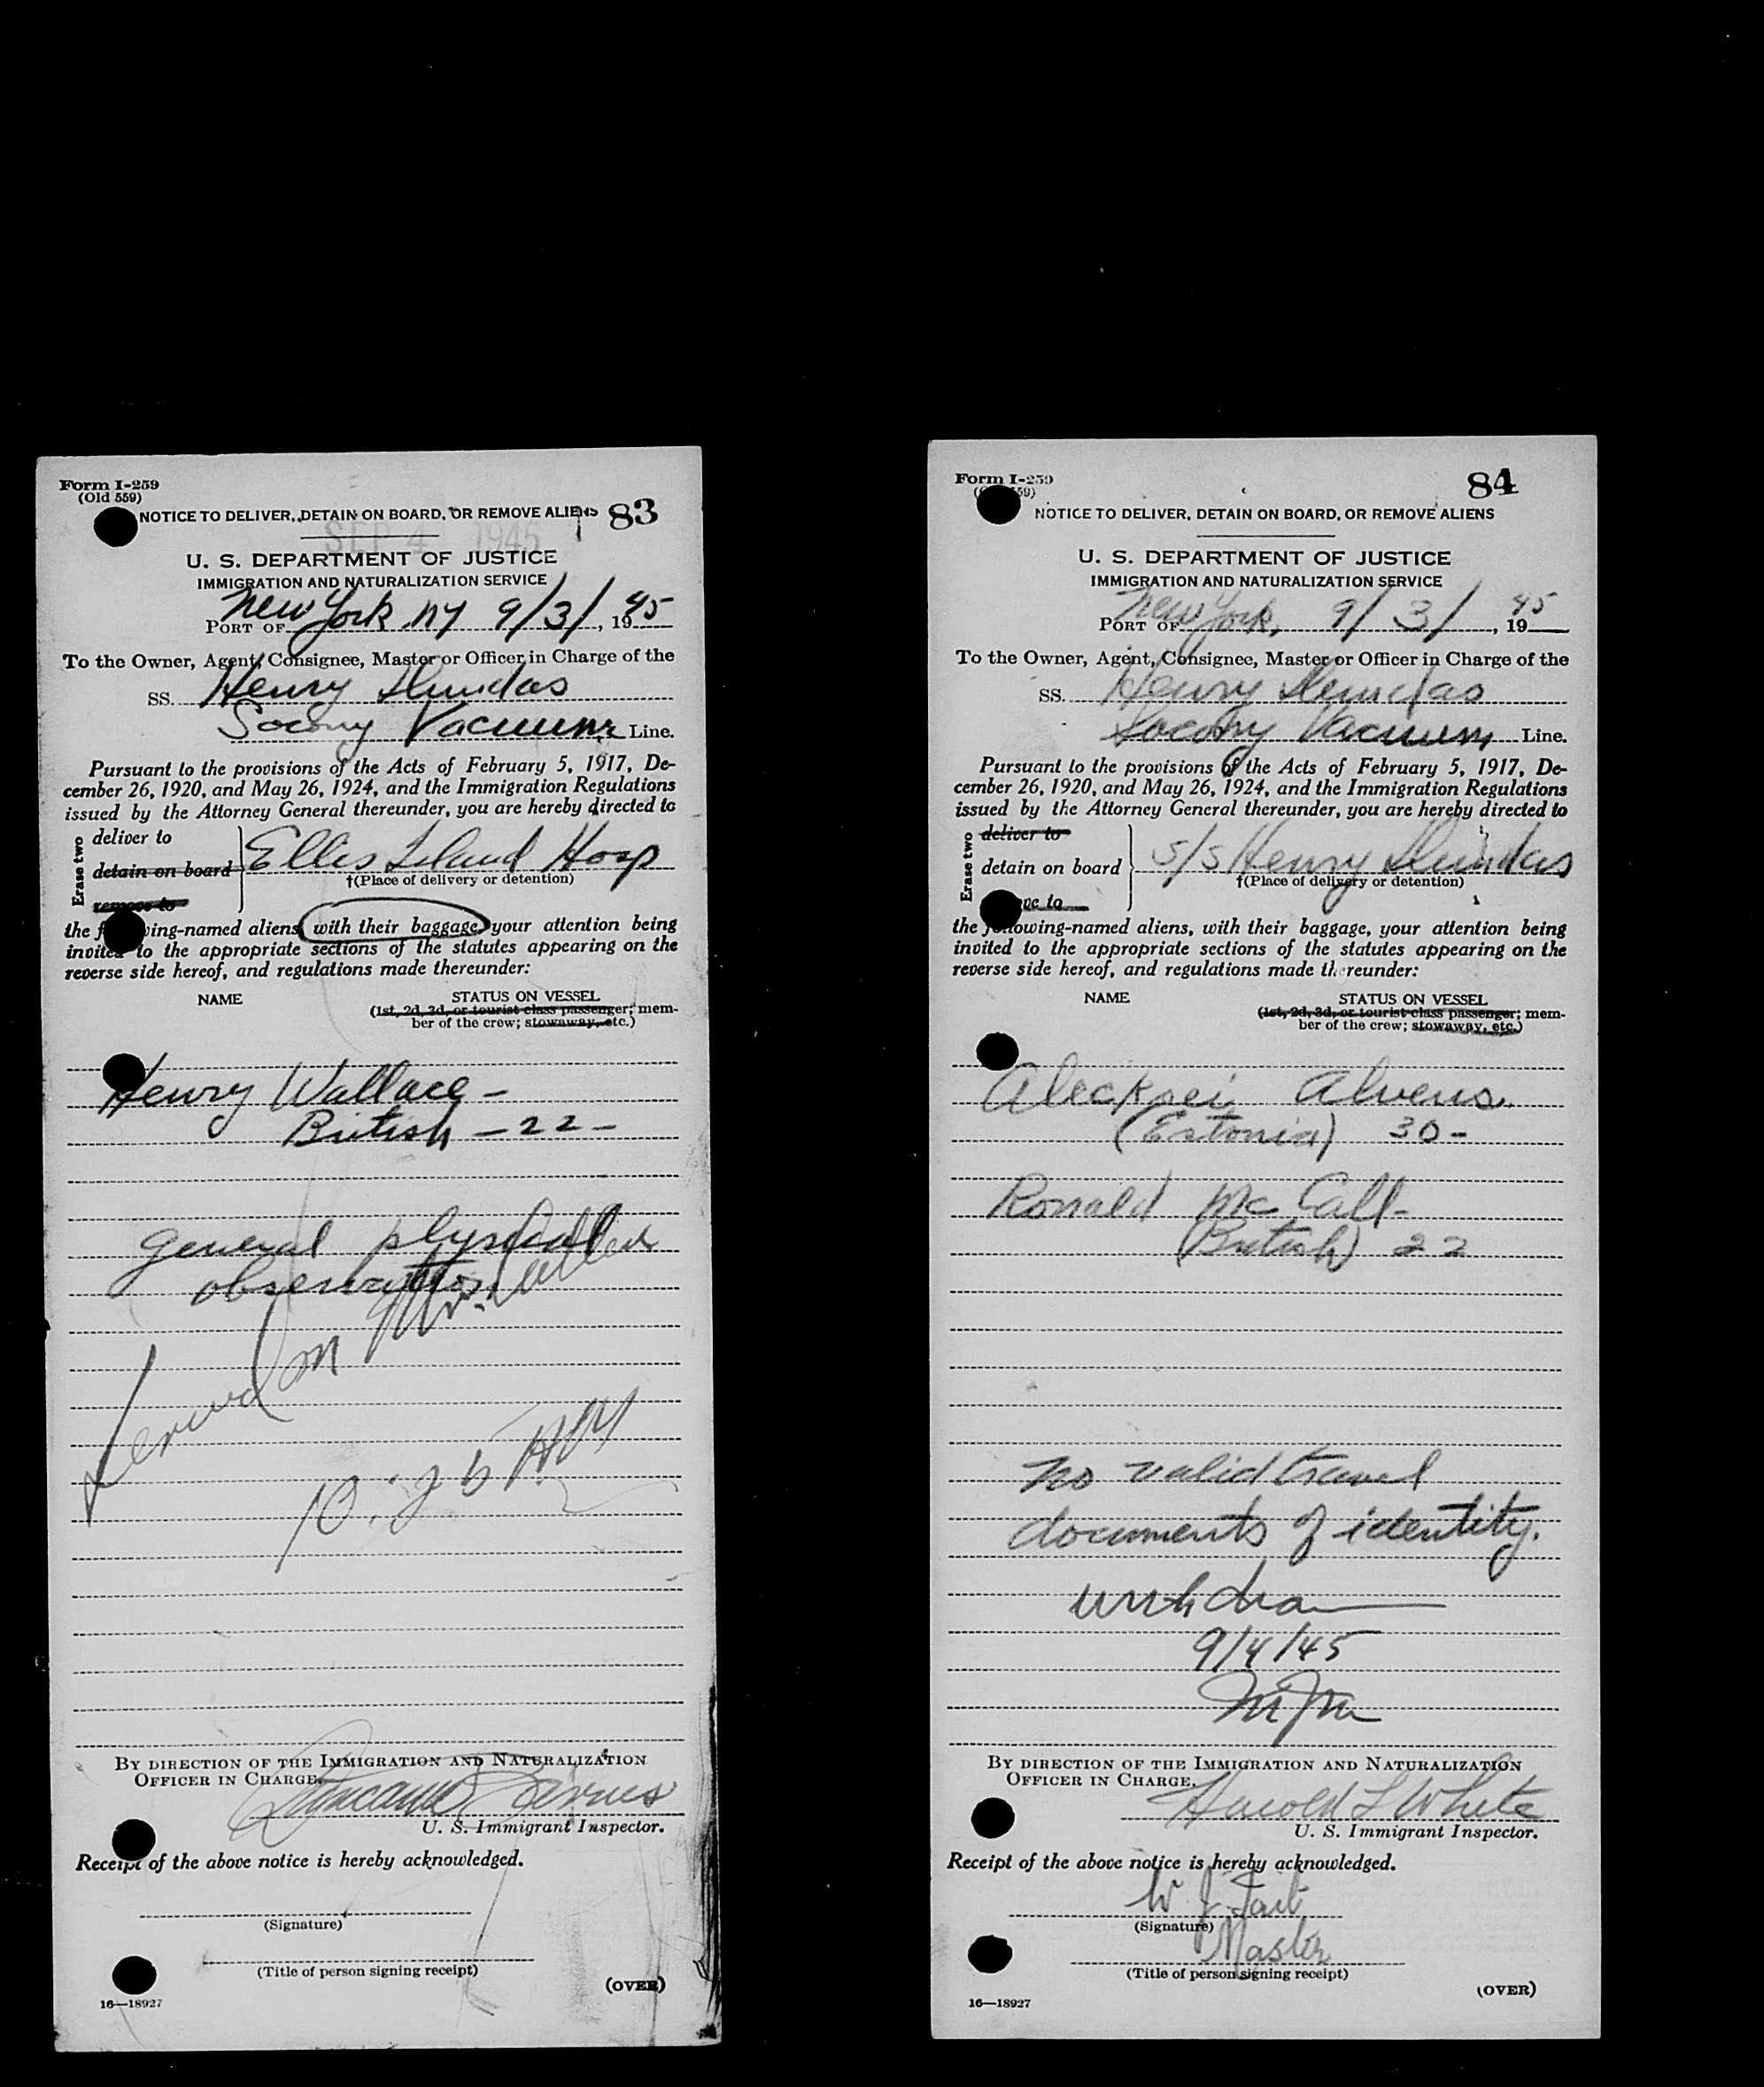 Form I-259
(Old 559)
83
NOTICE TO DELIVER, DETAIN ON BOARD, OR REMOVE ALIENS
SEP 4 1945
U. S. DEPARTMENT OF JUSTICE
IMMIGRATION AND NATURALIZATION SERVICE
PORT OF New York, NY 9/3/, 1945
To the Owner, Agent, Consignee, Master or Officer in Charge of the
SS. Henry Dundas
Socony Vacuum Line.
Pursuant to the provisions of the Acts of February 5, 1917, De-
cember 26, 1920, and May 26, 1924, and the Immigration Regulations
issued by the Attorney General thereunder, you are hereby directed to
Erase two
deliver to
detain on board
remove to
Ellis Island Hosp
†(Place of delivery or detention)
the following-named aliens, with their baggage, your attention being
invited to the appropriate sections of the statutes appearing on the
reverse side hereof, and regulations made thereunder:
NAME
STATUS ON VESSEL
(1st, 2d, 3d, or tourist class passenger; mem-
ber of the crew; stowaway, etc.)
Henry Wallace -
British - 22 -
general physical
observation
Served on Mr.
10:25 AM
BY DIRECTION OF THE IMMIGRATION AND NATURALIZATION
OFFICER IN CHARGE.
U. S. Immigrant Inspector.
Receipt of the above notice is hereby acknowledged.
(Signature)
(Title of person signing receipt)
(OVER)
16—18927
Form I-259
(Old 559)
84
NOTICE TO DELIVER, DETAIN ON BOARD, OR REMOVE ALIENS
U. S. DEPARTMENT OF JUSTICE
IMMIGRATION AND NATURALIZATION SERVICE
PORT OF New York, 9/3/, 1945
To the Owner, Agent, Consignee, Master or Officer in Charge of the
SS. Henry Dundas
Socony Vacuum Line.
Pursuant to the provisions of the Acts of February 5, 1917, De-
cember 26, 1920, and May 26, 1924, and the Immigration Regulations
issued by the Attorney General thereunder, you are hereby directed to
Erase two
deliver to
detain on board
remove to
S/S Henry Dundas
†(Place of delivery or detention)
the following-named aliens, with their baggage, your attention being
invited to the appropriate sections of the statutes appearing on the
reverse side hereof, and regulations made thereunder:
NAME
STATUS ON VESSEL
(1st, 2d, 3d, or tourist class passenger; mem-
ber of the crew; stowaway, etc.)
Alecksei Alvens.
(Estonia) 30-
Ronald McCall-
(British) 22
No valid travel
documents of identity.
withdrawn
9/4/45
BY DIRECTION OF THE IMMIGRATION AND NATURALIZATION
OFFICER IN CHARGE.
Harold L White
U. S. Immigrant Inspector.
Receipt of the above notice is hereby acknowledged.
W J Tait
(Signature)
Master
(Title of person signing receipt)
(OVER)
16—18927